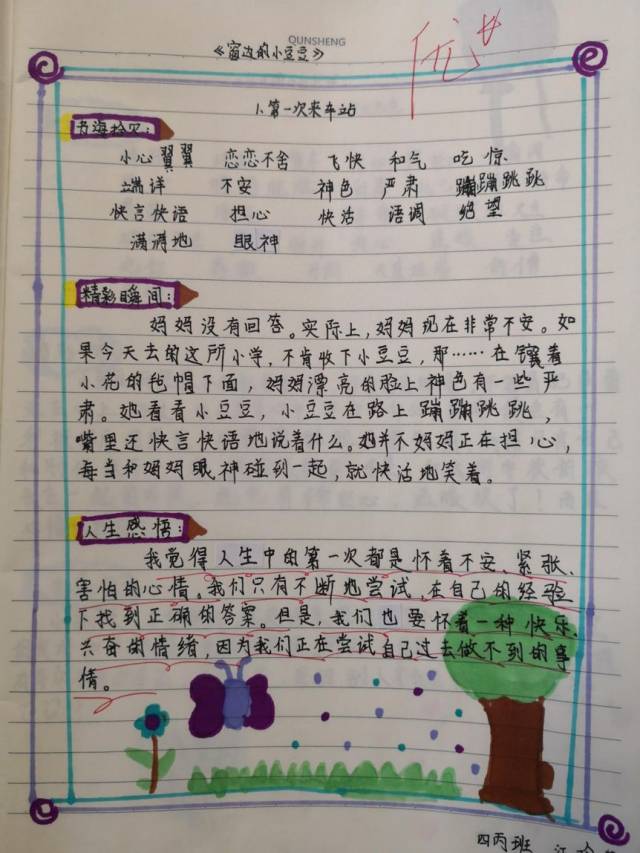 QUNSHENG
《窗边的小豆豆》
优
1.第一次来车站
书海拾贝:
小心翼翼 恋恋不舍 飞快 和气 吃惊
端详 不安 神色 严肃 蹦蹦跳跳
快言快语 担心 快活 语调 绝望
满满地 眼神
精彩瞬间:
妈妈没有回答。实际上,妈妈现在非常不安。如
果今天去的这所小学,不肯收下小豆豆,那……在镶着
小花的毡帽下面,妈妈漂亮的脸上神色有一些严
肃。她看看小豆豆,小豆豆在路上蹦蹦跳跳,
嘴里还快言快语地说着什么。她并不妈妈正在担心,
每当和妈妈眼神碰到一起,就快活地笑着。
人生感悟:
我觉得人生中的第一次都是怀着不安、紧张、
害怕的心情。我们只有不断地尝试,在自己的经验
下找到正确的答案。但是,我们也要怀着一种快乐、
兴奋的情绪,因为我们正在尝试自己过去做不到的事
情。
四丙班